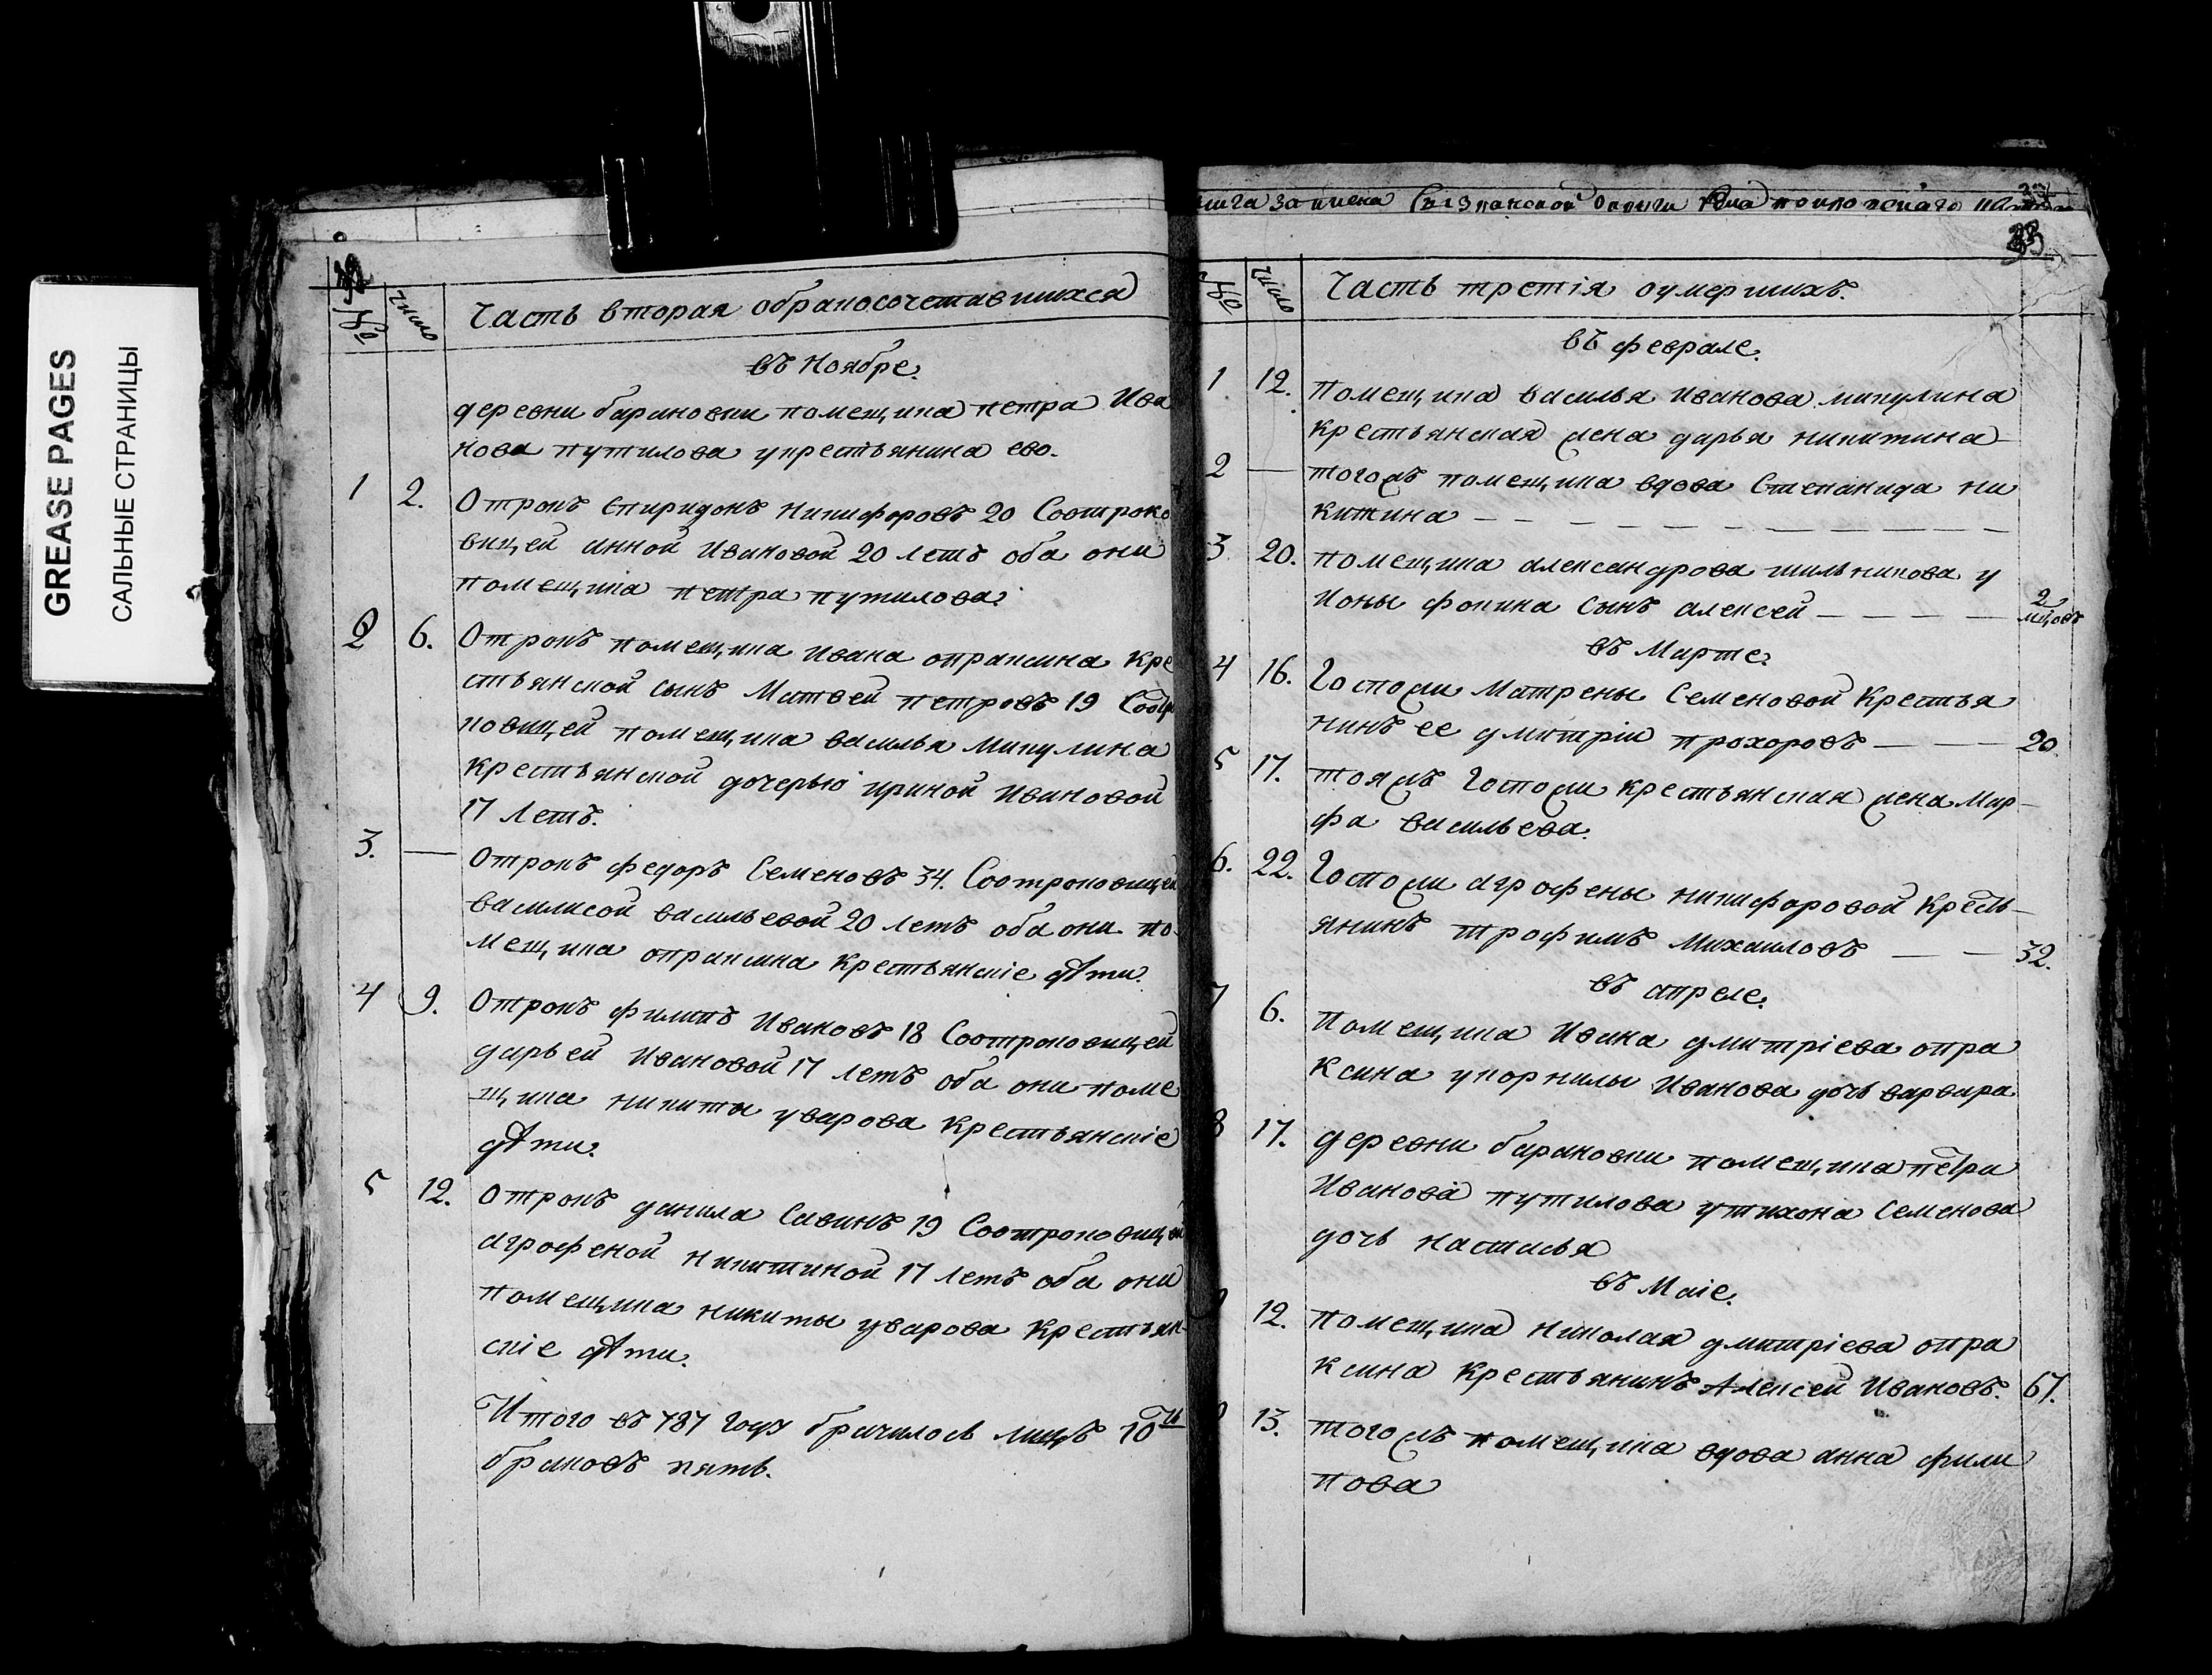 GREASE PAGES
САЛЬНЫЕ СТРАНИЦЫ
№ число Часть вторая обракосочетавшихся
въ Ноябре.
деревни барановки помещика петра Ива
нова путилова укрестьянина ево.
1 2. Отрокъ Спиридонъ Никифоровъ 20 Соотроко
вицей анной Ивановой 20 летъ оба они
помещика петра путилова.
2 6. Отрокъ помещика Ивана опраксина кре
стьянской сынъ Матвей петровъ 19 Сооtро
ковицей помещика василья микулина
крестьянской дочерью ириной Ивановой
17 летъ.
3. — Отрокъ федоръ Семеновъ 34. Соотроковицей
василисой васильевой 20 летъ оба они по
мещика опраксина крестьянскіе дѣти.
4 9. Отрокъ филипъ Ивановъ 18 Соотроковицей
дарьей Ивановой 17 летъ оба они поме
щика никиты уварова крестьянскіе
дѣти.
5 12. Отрокъ данила Савинъ 19 Соотроковицей
агрофеной Никитиной 17 летъ оба они
помещика никиты уварова крестьян
скіе дѣти.
Итого въ 787 году брачилось лицъ 10ть
браковъ пять.
книга записна Сызранской округи села покровскаго
33
№ число Часть третія оумершихъ.
въ феврале.
1 12. Помещика василья иванова микулина
крестьянская жена дарья никитина
2 — тогожъ помещика вдова Степанида ни
китина — — — — — — — — — —
3 20. помещика александрова шильникова у
Ионы фокина сынъ алексей — — — — 2 мцовъ
въ Марте.
4 16. Госпожи Матрены Семеновой крестья
нинъ ее дмитріи прохоровъ — — — 20
5 17. тояжъ Госпожи крестьянская жена Мар-
фа васильева.
6. 22. Госпожи агрофены никифоровой кресть-
янинъ трофимъ Михаиловъ — — 32.
въ апреле.
7 6. Помещика Ивана дмитріева опра
ксина укорнилы Иванова дочь варвара
8 17. деревни барановки помещика петра
Иванова путилова утихона Семенова
дочь настасья
въ Маіе.
12. помещика николая дмитріева опра
ксина крестьянинъ Алексей Ивановъ. 67.
13. тогожъ помещика вдова анна фили
пова